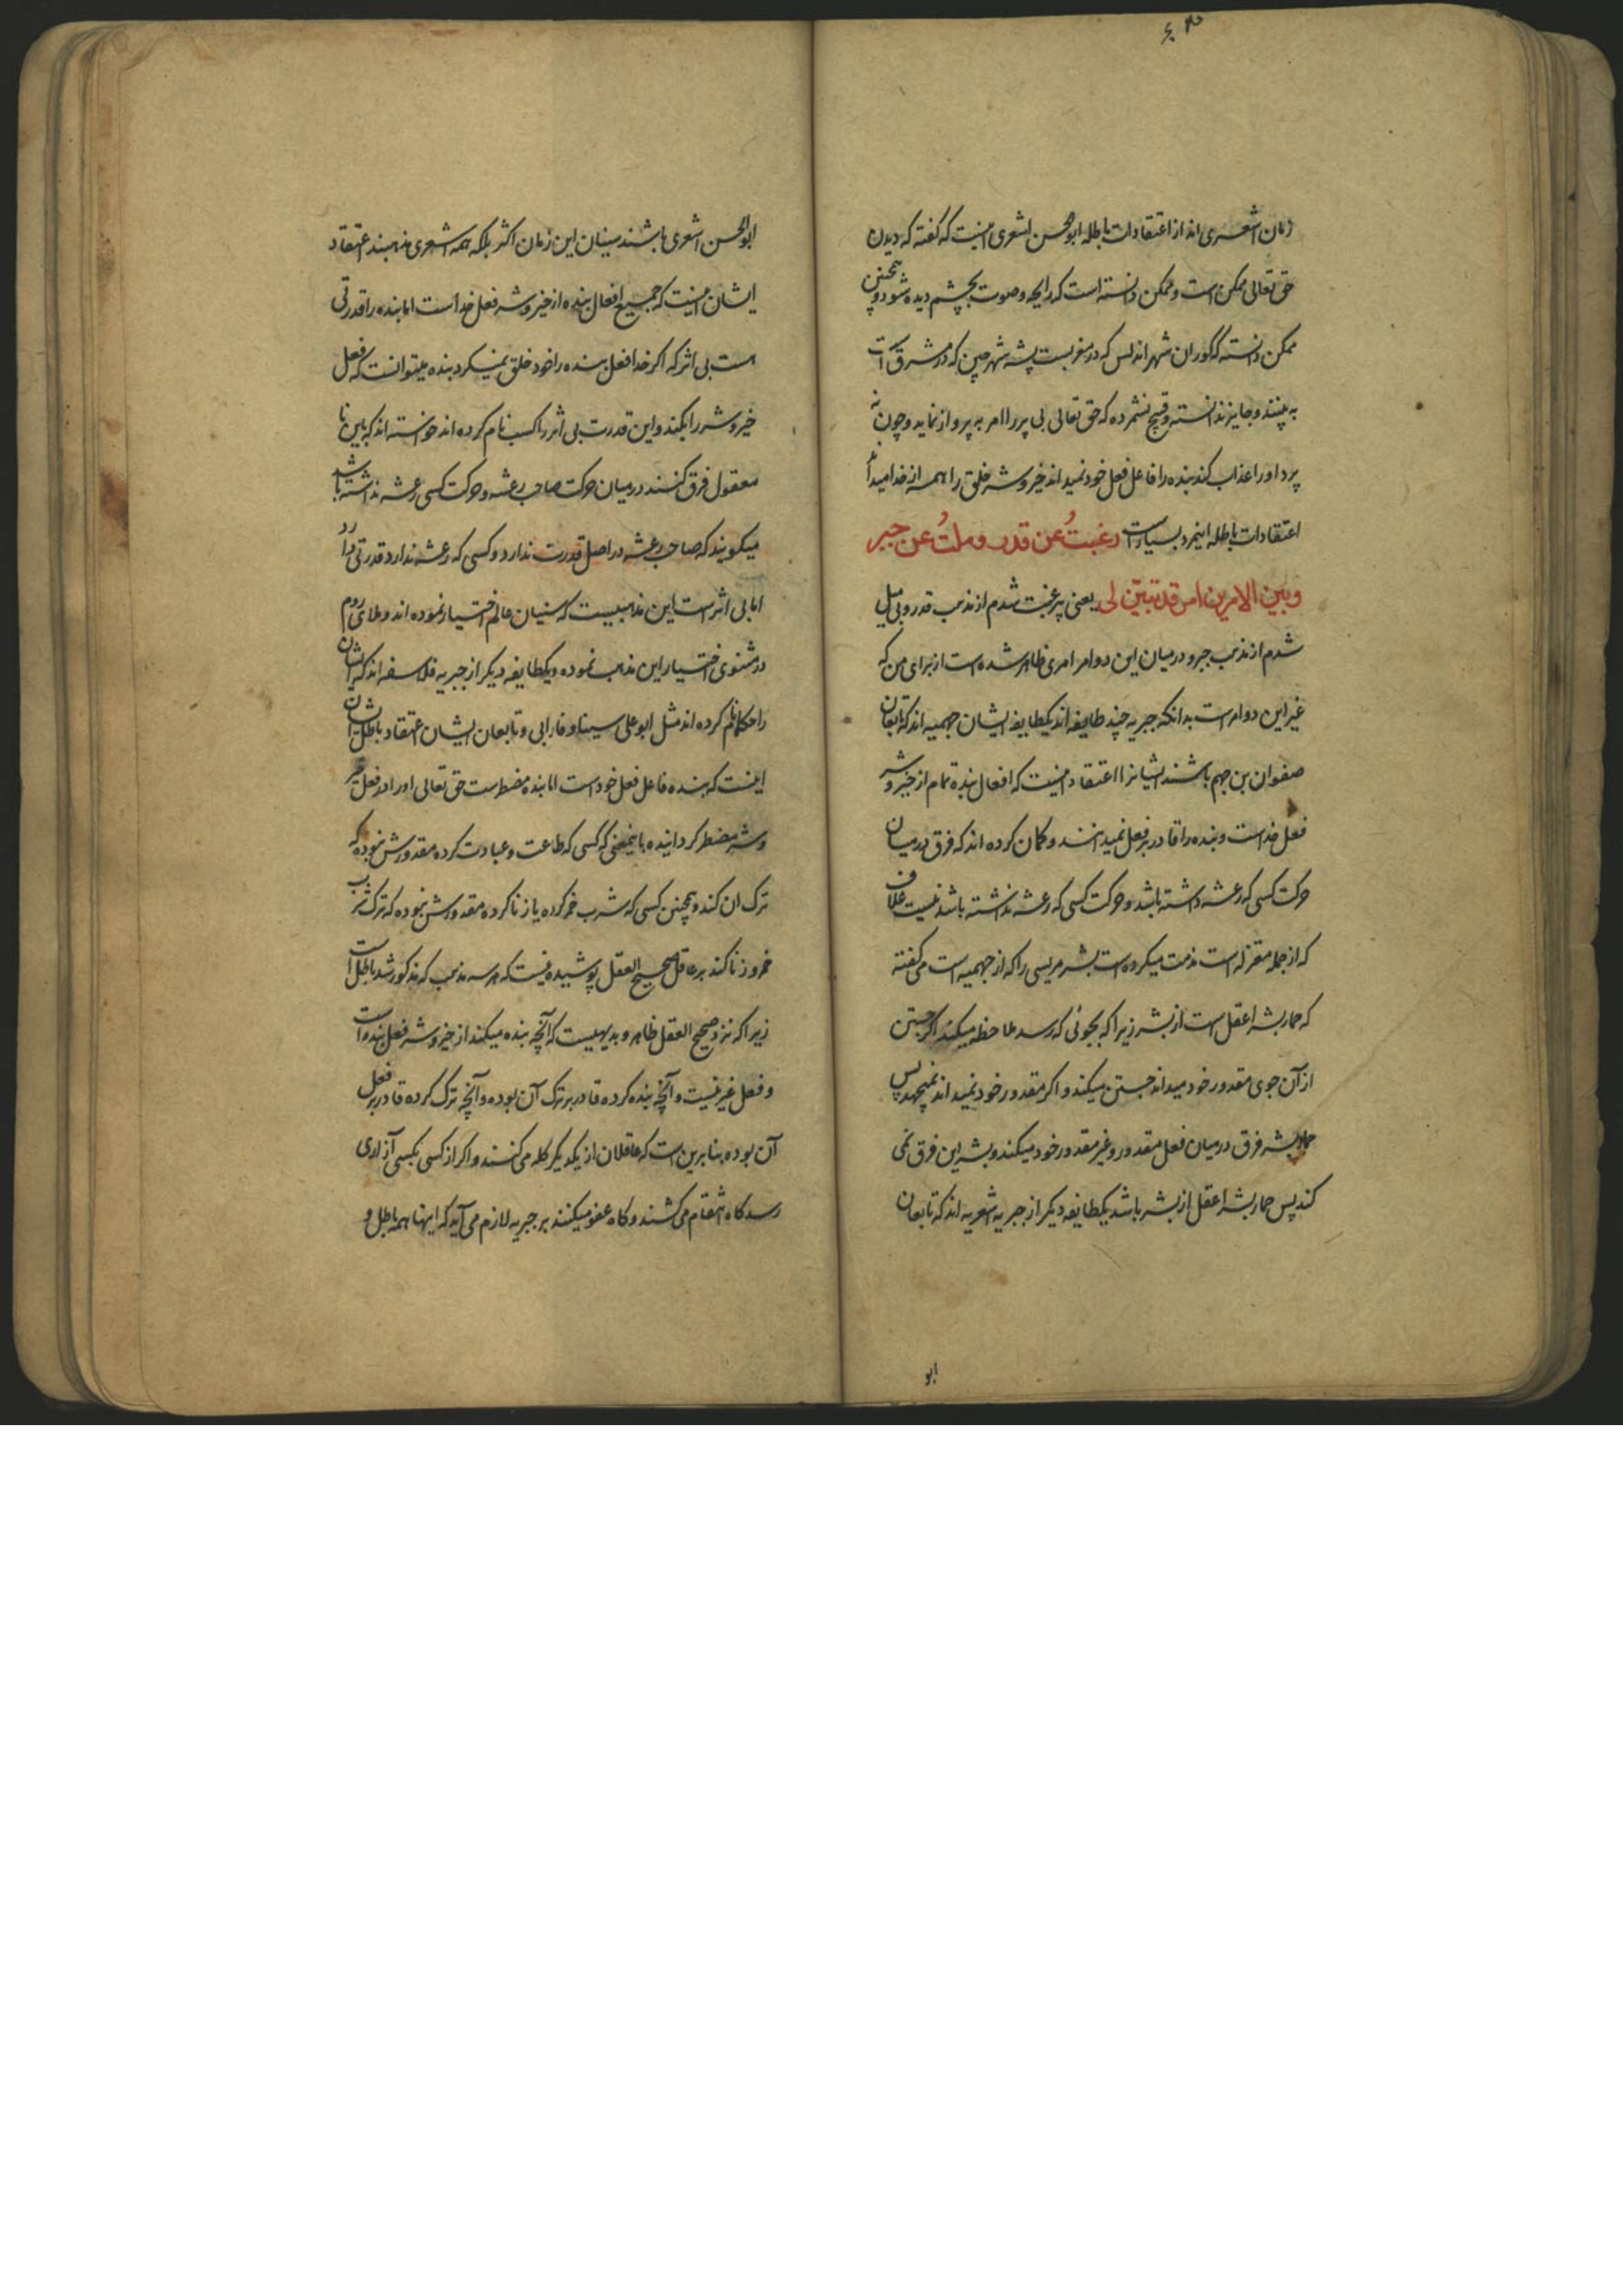 زمان اشعری اند از اعتقادات باطله ابوالحسن اشعری اینست که گفته که دیدن
حق تعالی ممکن است و ممکن دانسته است که رایحه و صوت بچشم دیده شود و همچنین
ممکن دانسته که کوران شهر اندلس که در مغربست پشه شهر چین که در مشرق است
به بینند و جایز دانسته و قبیح نشمرده که حق تعالی بی پر را امر به پرواز نماید و چون نه
پرد او را عذاب کند بنده را فاعل فعل خود نمیداند خیر و شر خلق را همه از خدا میداند
اعتقادات باطله اینمرد بسیار است رغبتُ عن قدر و ملتُ عن جبر
و بین الامرین امر قد تبیّن لی یعنی بی رغبت شدم از مذهب قدر و بی میل
شدم از مذهب جبر و در میان این دو امر امری ظاهر شده است از برای من که
غیر این دو امر است بدانکه جبریه چند طایفه اند یکطایفه ایشان جهمیه اند که تابعان
صفوان بن جهم باشند ایشانرا اعتقاد اینست که افعال بنده تمام از خیر و شر
فعل خداست و بنده را قادر بر فعل نمیدانند و گمان کرده اند که فرق درمیان
حرکت کسی که رعشه داشته باشد و حرکت کسی که رعشه نداشته باشد نیست علاف
که از جمله معتزله است مذمت میکرده است بشر مریسی را که از جهمیه است می گفته
که حمار بشر اعقل است از بشر زیرا که بجوئی که رسد ملاحظه میکند اگر جستن
از آن جوی مقدور خود میداند جستن میکند و اگر مقدور خود نمیداند نمیجهد پس
حمار بشر فرق درمیان فعل مقدور و غیر مقدور خود میکند و بشر این فرق نمی
کند پس حمار بشر اعقل از بشر باشد یکطایفه دیگر از جبریه اشعریه اند که تابعان
ابو
ابوالحسن اشعری باشند سنیان این زمان اکثر بلکه همه اشعری مذهبند اعتقاد
ایشان اینست که جمیع افعال بنده از خیر و شر فعل خداست اما بنده را قدرتی
است بی اثر که اگر خدا فعل بنده را خود خلق نمیکرد بنده میتوانست که فعل
خیر و شر را بکند و این قدرت بی اثر را کسب نام کرده اند خواسته اند که باین نا
معقول فرق کنند درمیان حرکت صاحب رعشه و حرکت کسی رعشه نداشته باشد
میگویند که صاحب رعشه در اصل قدرت ندارد و کسی که رعشه ندارد قدرتی دارد
اما بی اثر است این مذهبیست که سنیان عالم اختیار نموده اند و ملای روم
در مثنوی اختیار این مذهب نموده و یکطایفه دیگر از جبریه فلاسفه اند که ایشان
را حکما نام کرده اند مثل ابو علی سینا و فارابی و تابعان ایشان اعتقاد باطل ایشان
اینست که بنده فاعل فعل خود است اما بنده مضطر است حق تعالی او را در فعل خیر
و شر مضطر گردانیده باینمعنی که کسی که طاعت و عبادت کرده مقدورش نبوده که
ترک ان کند و همچنین کسی که شرب خمر کرده یا زنا کرده مقدورش نبوده که ترک شرب
خمر و زنا کند بر عاقل صحیح العقل پوشیده نیست که هر سه مذهب که مذکور شد باطل است
زیرا که نزد صحیح العقل ظاهر و بدیهیست که آنچه بنده میکند از خیر و شر فعل بنده است
و فعل غیر نیست و آنچه بنده کرده قادر بر ترک آن بوده و آنچه ترک کرده قادر بر فعل
آن بوده بنابرین است که عاقلان از یکدیگر گله می کنند و اگر از کسی بکسی آزاری
رسد گاه انتقام می کشند و گاه عفو میکنند بر جبریه لازم می آید که اینها همه باطل و